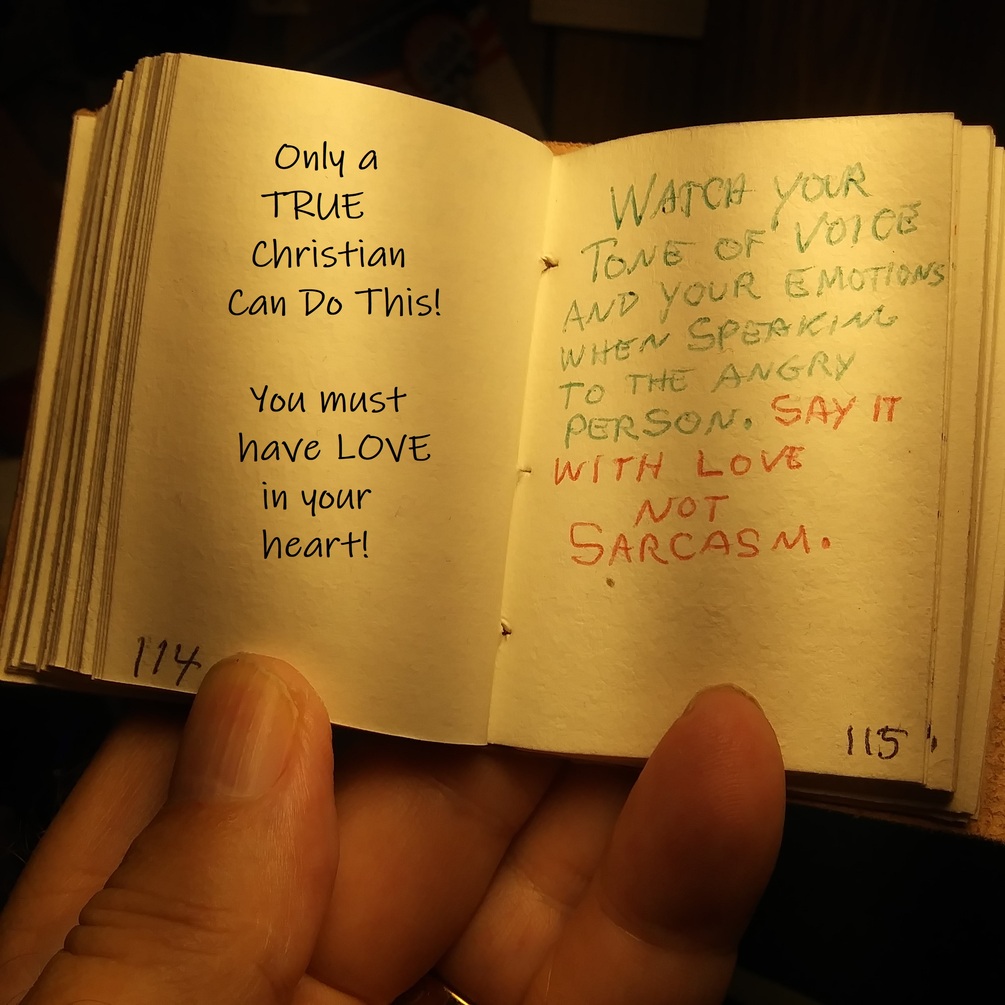 Only a
TRUE
Christian
Can Do This!
You must
have LOVE
in your
heart!
114
WATCH YOUR
TONE OF VOICE
AND YOUR EMOTIONS
WHEN SPEAKING
TO THE ANGRY
PERSON. SAY IT
WITH LOVE
NOT
SARCASM.
115